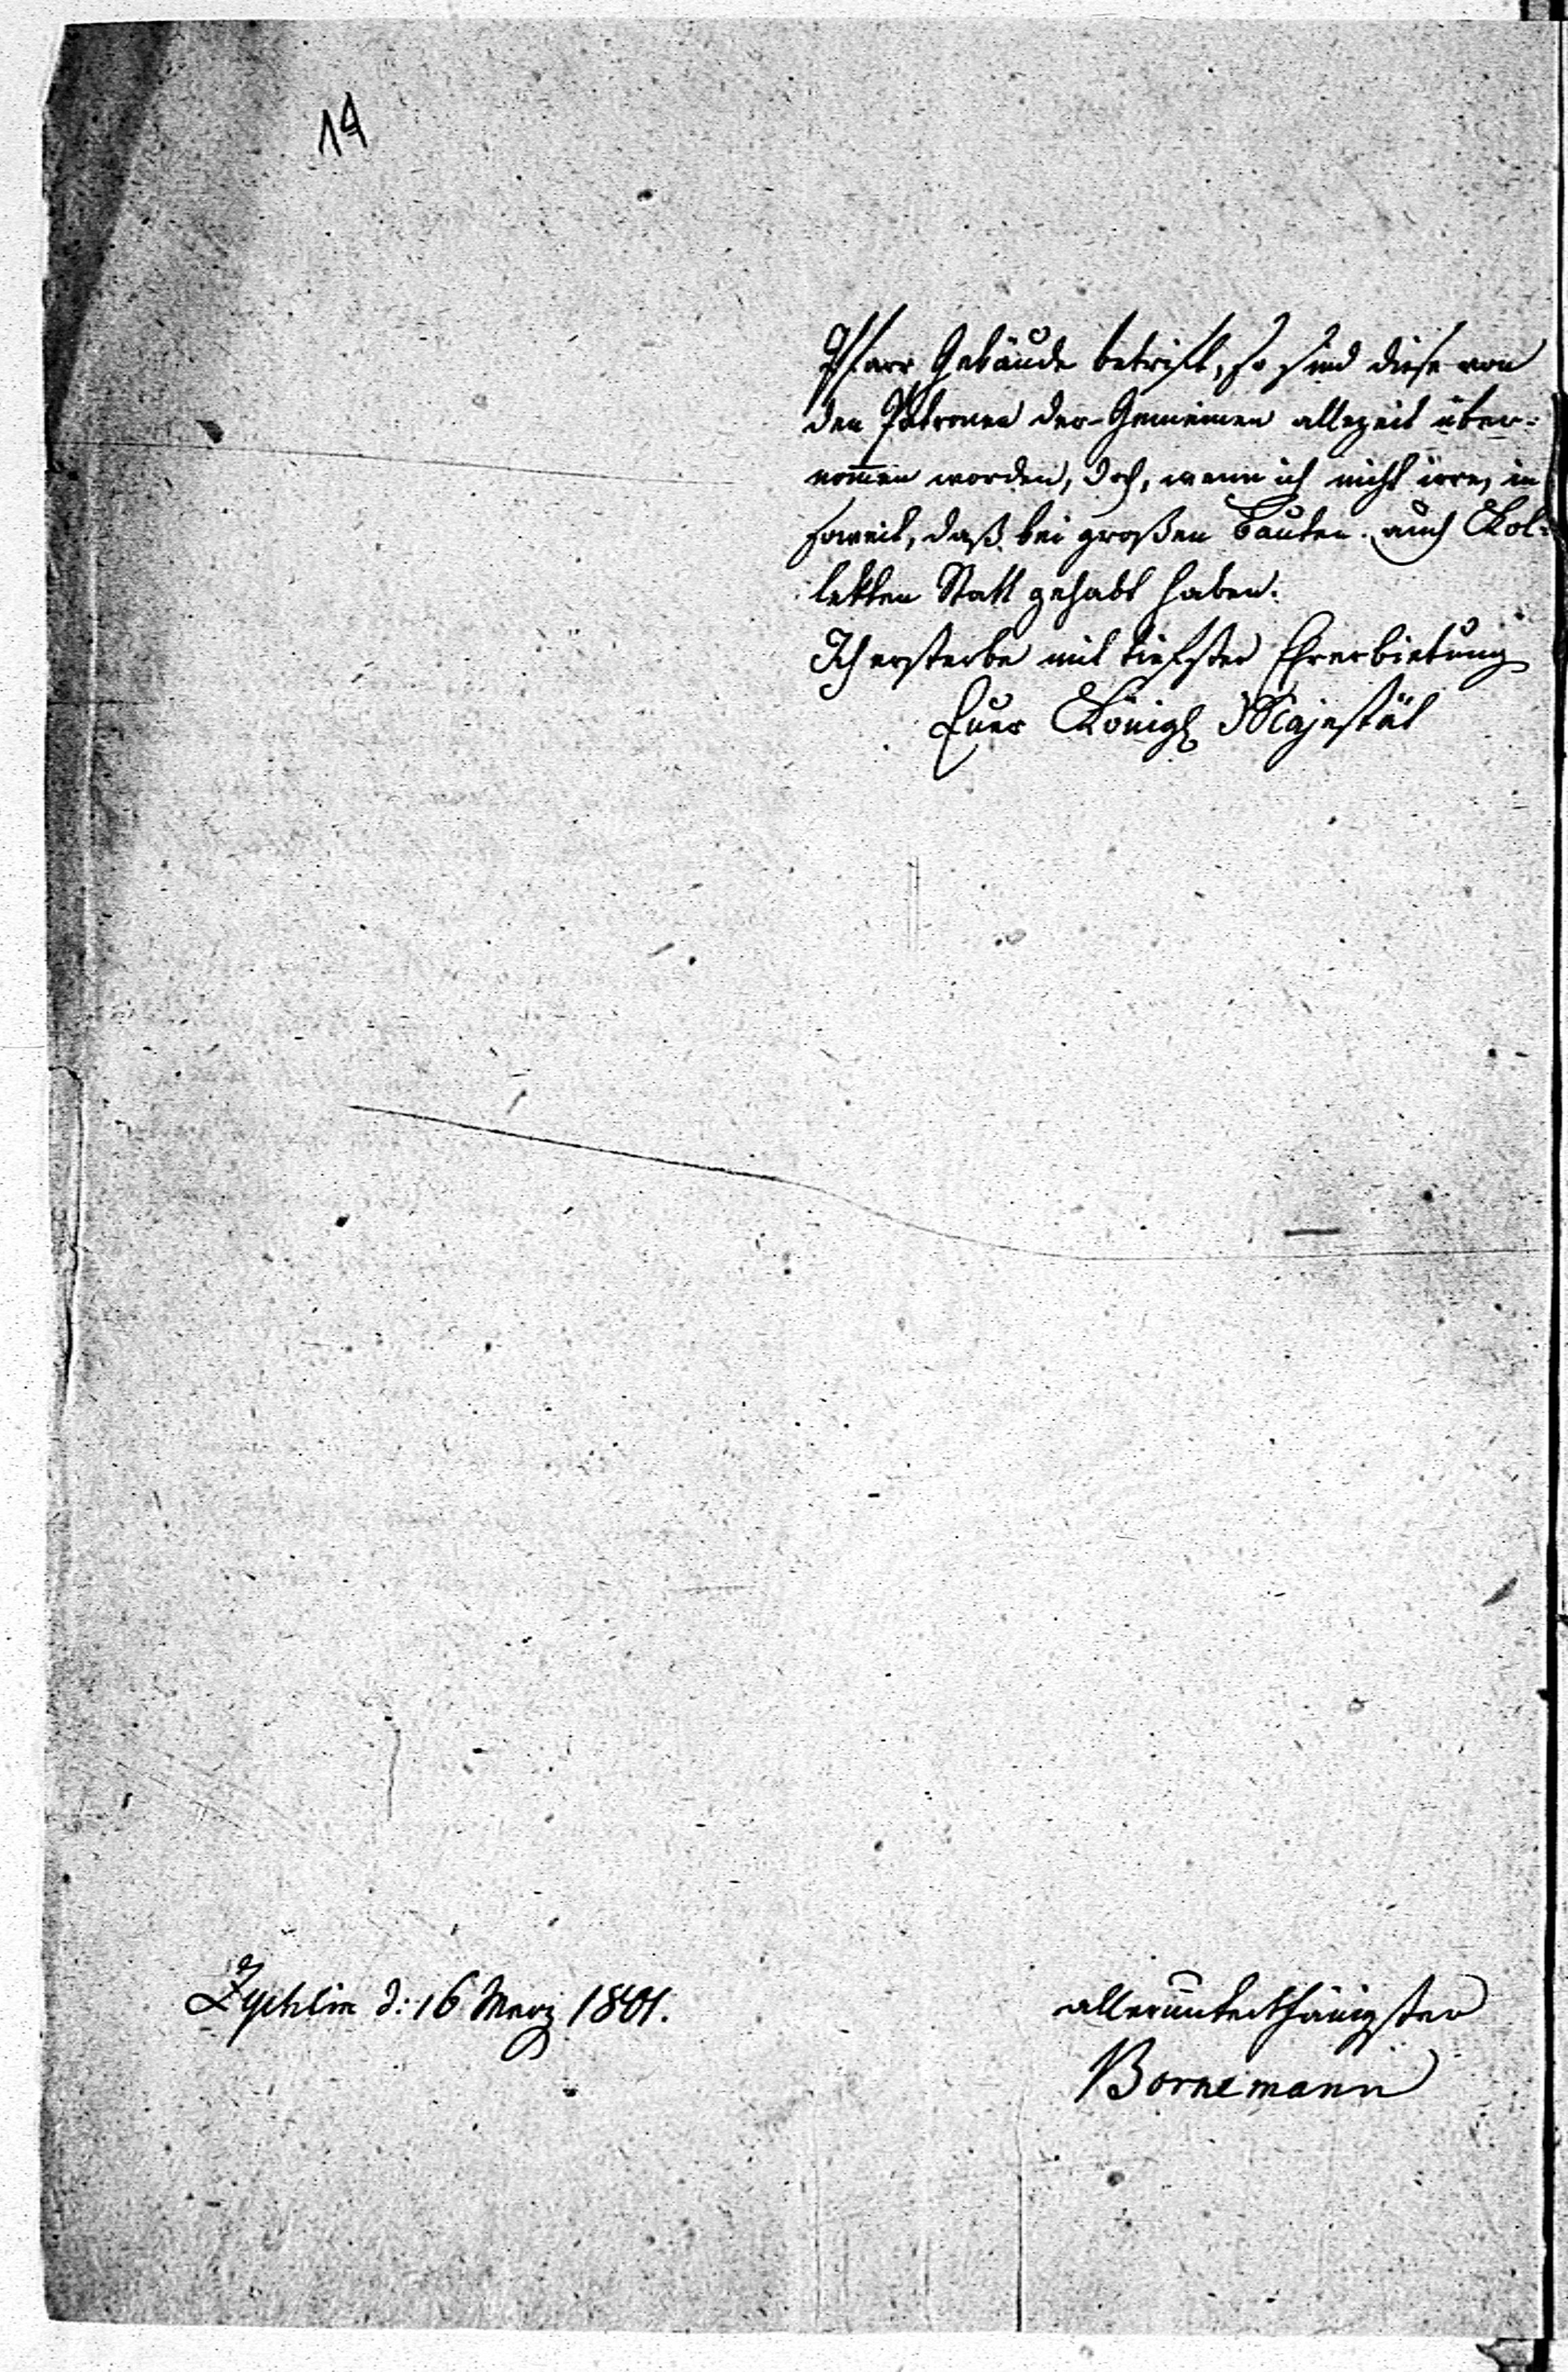 14
Pfarr Gebäude betrift, so sind diese von
den Patronen der Gemeinen allezeit über=
nom̄en worden, doch, wenn ich nicht irre, in
soweit, daß bei großen Bauten auch Kol=
lekten Statt gehabt haben.
Ich ersterbe mit tiefster Ehrerbietung
Euer Königl Majestät
Zychlin d: 16 Merz 1801.
allerunterthänigster
Bornemann